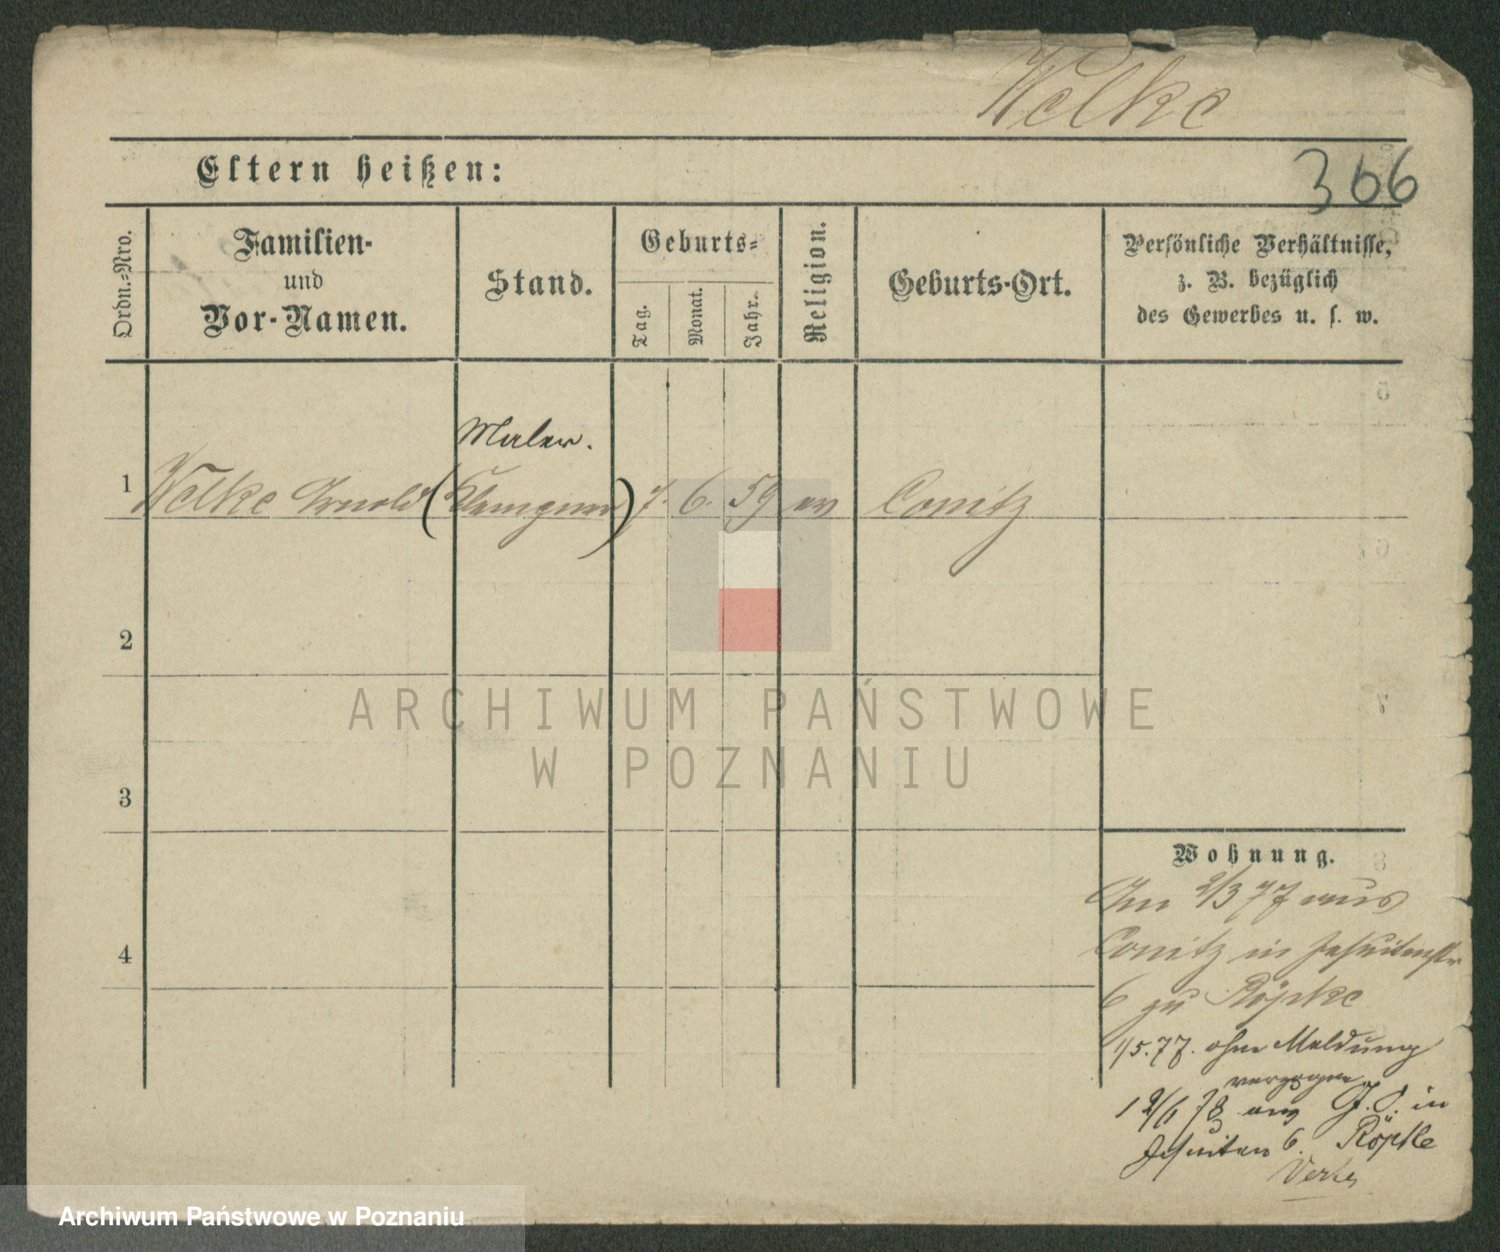 Welke
Eltern heißen:
366
Ordn.-Nro.
Familien-
und
Vor-Namen.
Stand.
Geburts-
Tag.
Monat.
Jahr.
Religion.
Geburts-Ort.
Persönliche Verhältnisse,
z. B. bezüglich
des Gewerbes u. s. w.
Maler.
1 Welke Arnold (Klempner) 7. 6. 59 ev Conitz
2
3
4
Wohnung.
Am 2/3 77 aus
Conitz in Jesuitenstr
6 zu Röpke
1/5.77. ohne Meldung
verzogen
6. Röpke
ARCHIWUM PAŃSTWOWE
W POZNANIU
Archiwum Państwowe w Poznaniu